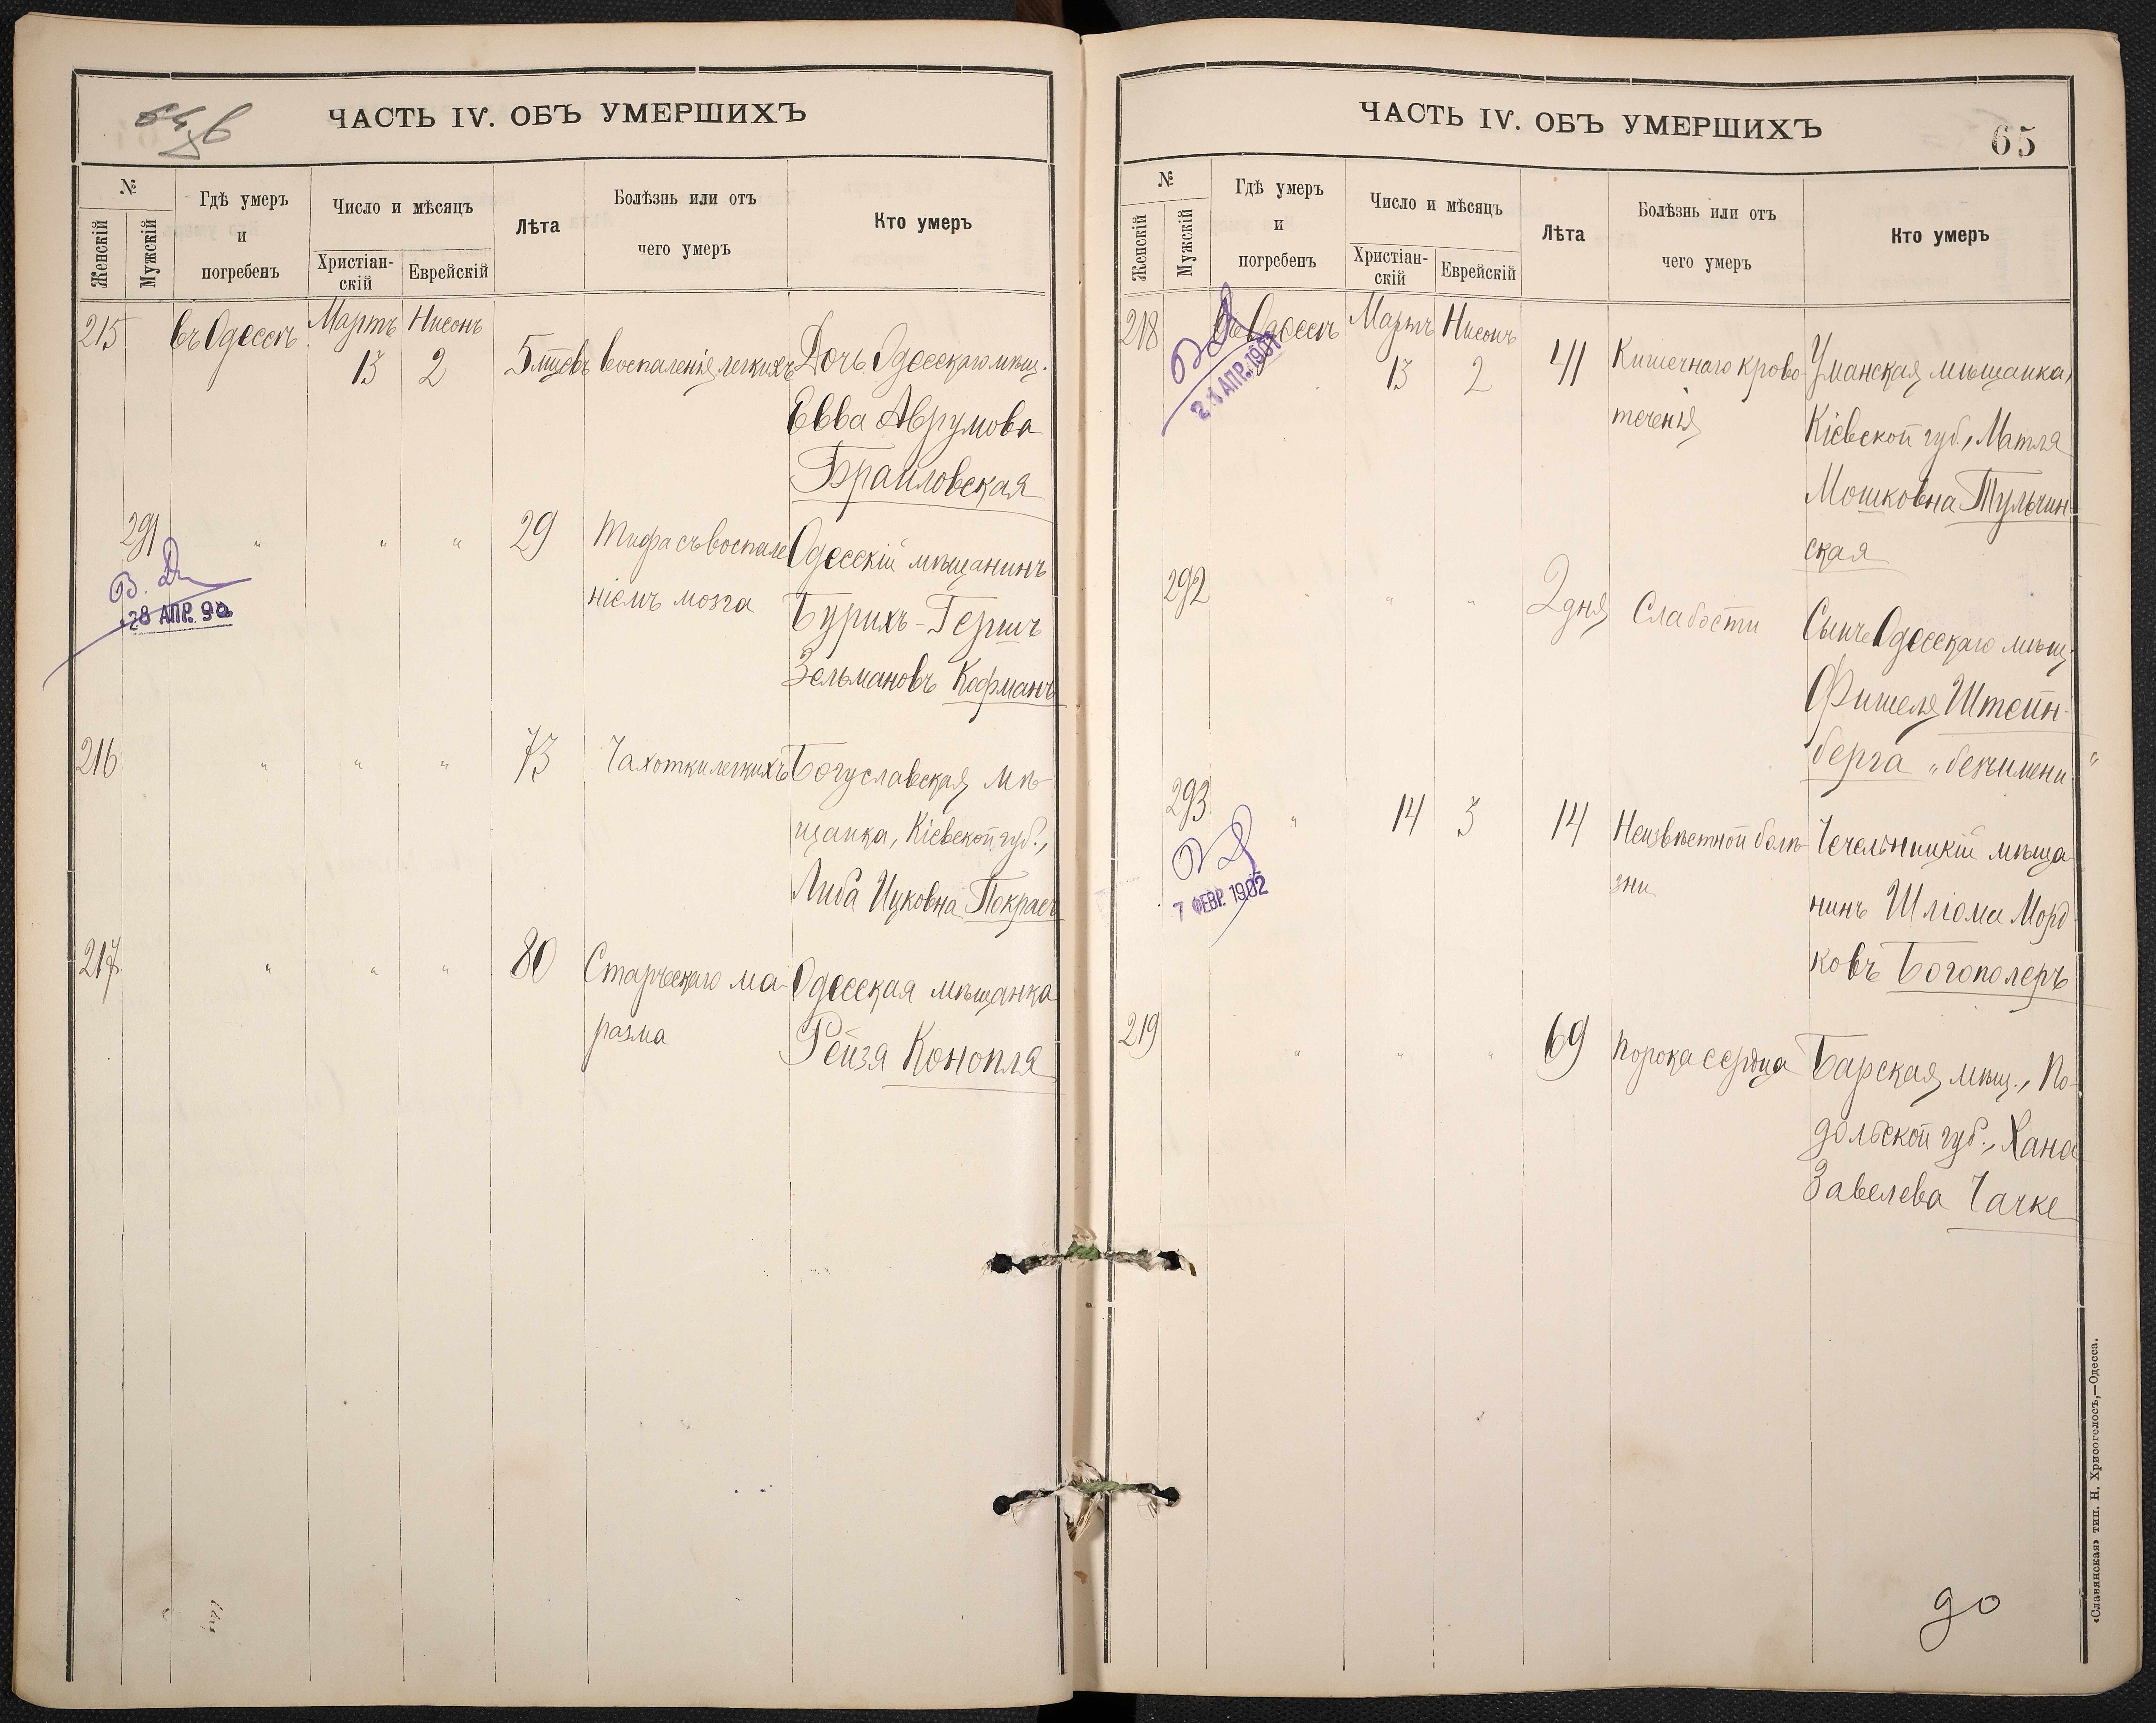 ЧАСТЬ IV. ОБЪ УМЕРШИХЪ
№
Женскій
Мужскій
Гдѣ умеръ
и
погребенъ
Число и мѣсяцъ
Христіан-
скій
Еврейскій
Лѣта
Болѣзнь или отъ
чего умеръ
Кто умеръ
215
въ Одессѣ
Мартъ
13
Нисонъ
2
5 мцевъ
воспаленія легкихъ
Дочь Одесскаго мѣщ.
Евва Аврумова
Браиловская
291
„
„
„
29
Тифа съ воспале
ніемъ мозга
Одесскій мѣщанинъ
Бурихъ-Гершъ
Зельмановъ Кофманъ
28 АПР. 98
216
„
„
„
73
Чахотки легкихъ
Богуславская мѣ-
щанка, Кіевской губ.,
Либа Ицковна Покрасъ
217
„
„
„
80
Старческаго ма-
разма
Одесская мѣщанка
Рейзя Конопля
ЧАСТЬ IV. ОБЪ УМЕРШИХЪ
65
№
Женскій
Мужскій
Гдѣ умеръ
и
погребенъ
Число и мѣсяцъ
Христіан-
скій
Еврейскій
Лѣта
Болѣзнь или отъ
чего умеръ
Кто умеръ
218
въ Одессѣ
Мартъ
13
Нисонъ
2
41
Кишечнаго крово-
теченія
Уманская мѣщанка,
Кіевской губ., Матля
Мошковна Тульчин-
ская
АПР. 1901
292
„
„
„
2 дня
Слабости
Сынъ Одесскаго мѣщ.
Фишеля Штейн-
берга „безъимени“
293
„
14
3
14
Неизвѣстной болѣ-
зни
Чечельницкій мѣща
нинъ Шліома Морд
ковъ Богополеръ
7 ФЕВР. 1902
219
„
„
„
69
Порока сердца
Барская мѣщ., По-
дольской губ., Хана
Завелева Чачке
«Славянская» тип. Н. Хрисогелосъ,—Одесса.